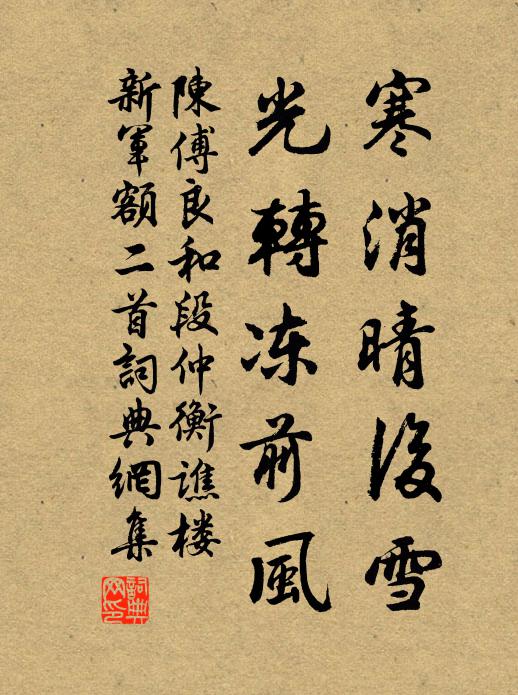 寒消晴後雪
光轉凍前風
陳傅良和段仲衡譙楼
新軍額二首詞典網集
詞典网印